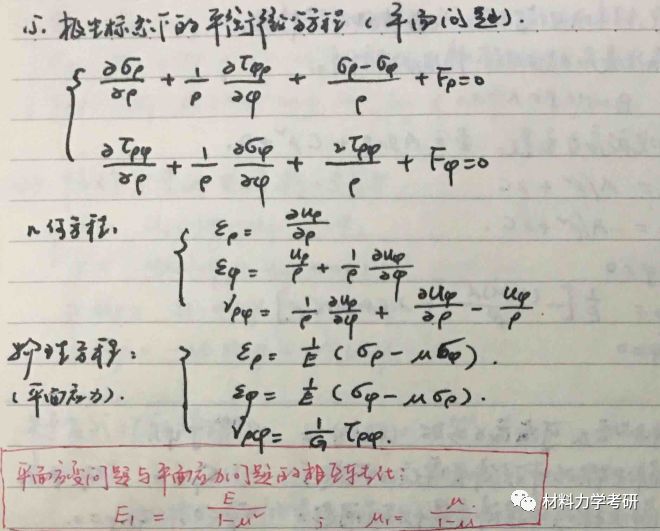 15. 极坐标系下的平衡微分方程 (平面问题).
∂σρ/∂ρ + 1/ρ ∂τφρ/∂φ + (σρ-σφ)/ρ + Fρ=0
∂τρφ/∂ρ + 1/ρ ∂σφ/∂φ + 2τρφ/ρ + Fφ=0
几何方程:
ερ = ∂uρ/∂ρ
εφ = uρ/ρ + 1/ρ ∂uφ/∂φ
γρφ = 1/ρ ∂uρ/∂φ + ∂uφ/∂ρ - uφ/ρ
物理方程: ερ = 1/E (σρ - μσφ).
(平面应力). εφ = 1/E (σφ - μσρ).
γρφ = 1/G τρφ.
平面应变问题与平面应力问题的相互转化:
E₁ = E/(1-μ²) ; μ₁ = μ/(1-μ)
材料力学考研